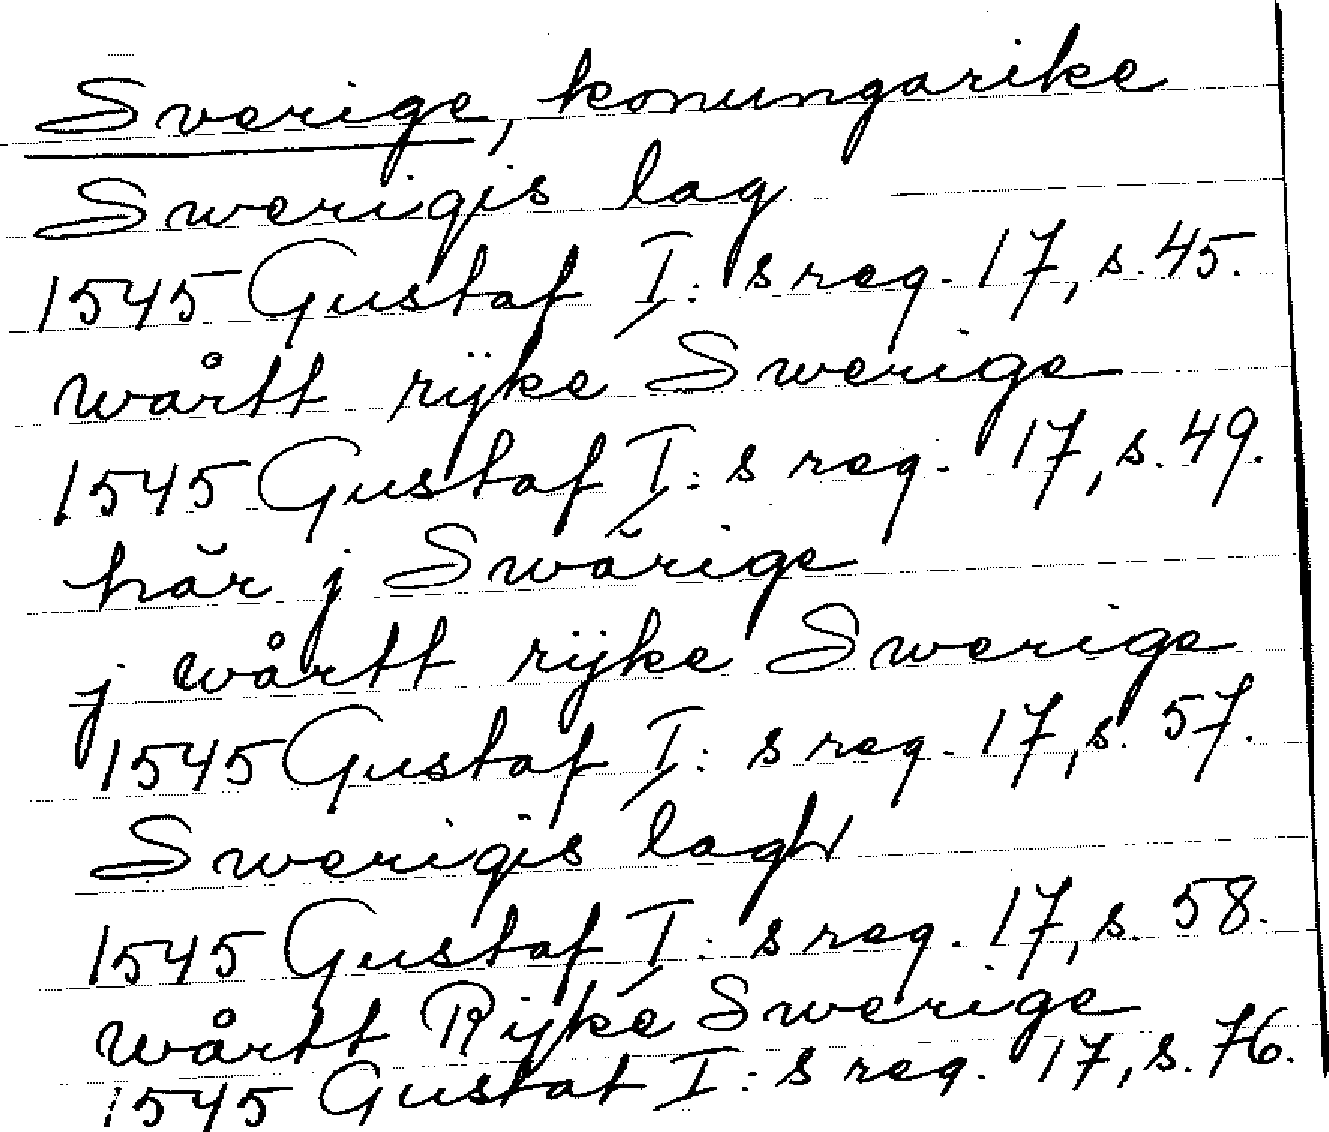 Sverige, konungarike
Swerigis lag
1545 Gustaf I: s reg. 17, s. 45.
wårtt rÿke Swerige
1545 Gustaf I: s reg. 17, s. 49.
här j Swärige
j wårtt rÿke Swerige
1545 Gustaf I: s reg. 17, s. 57.
Swerigis lagh
1545 Gustaf I: s reg. 17, s. 58.
wårtt Rijke Swerige
1545 Gustaf I: s reg. 17, s. 76.